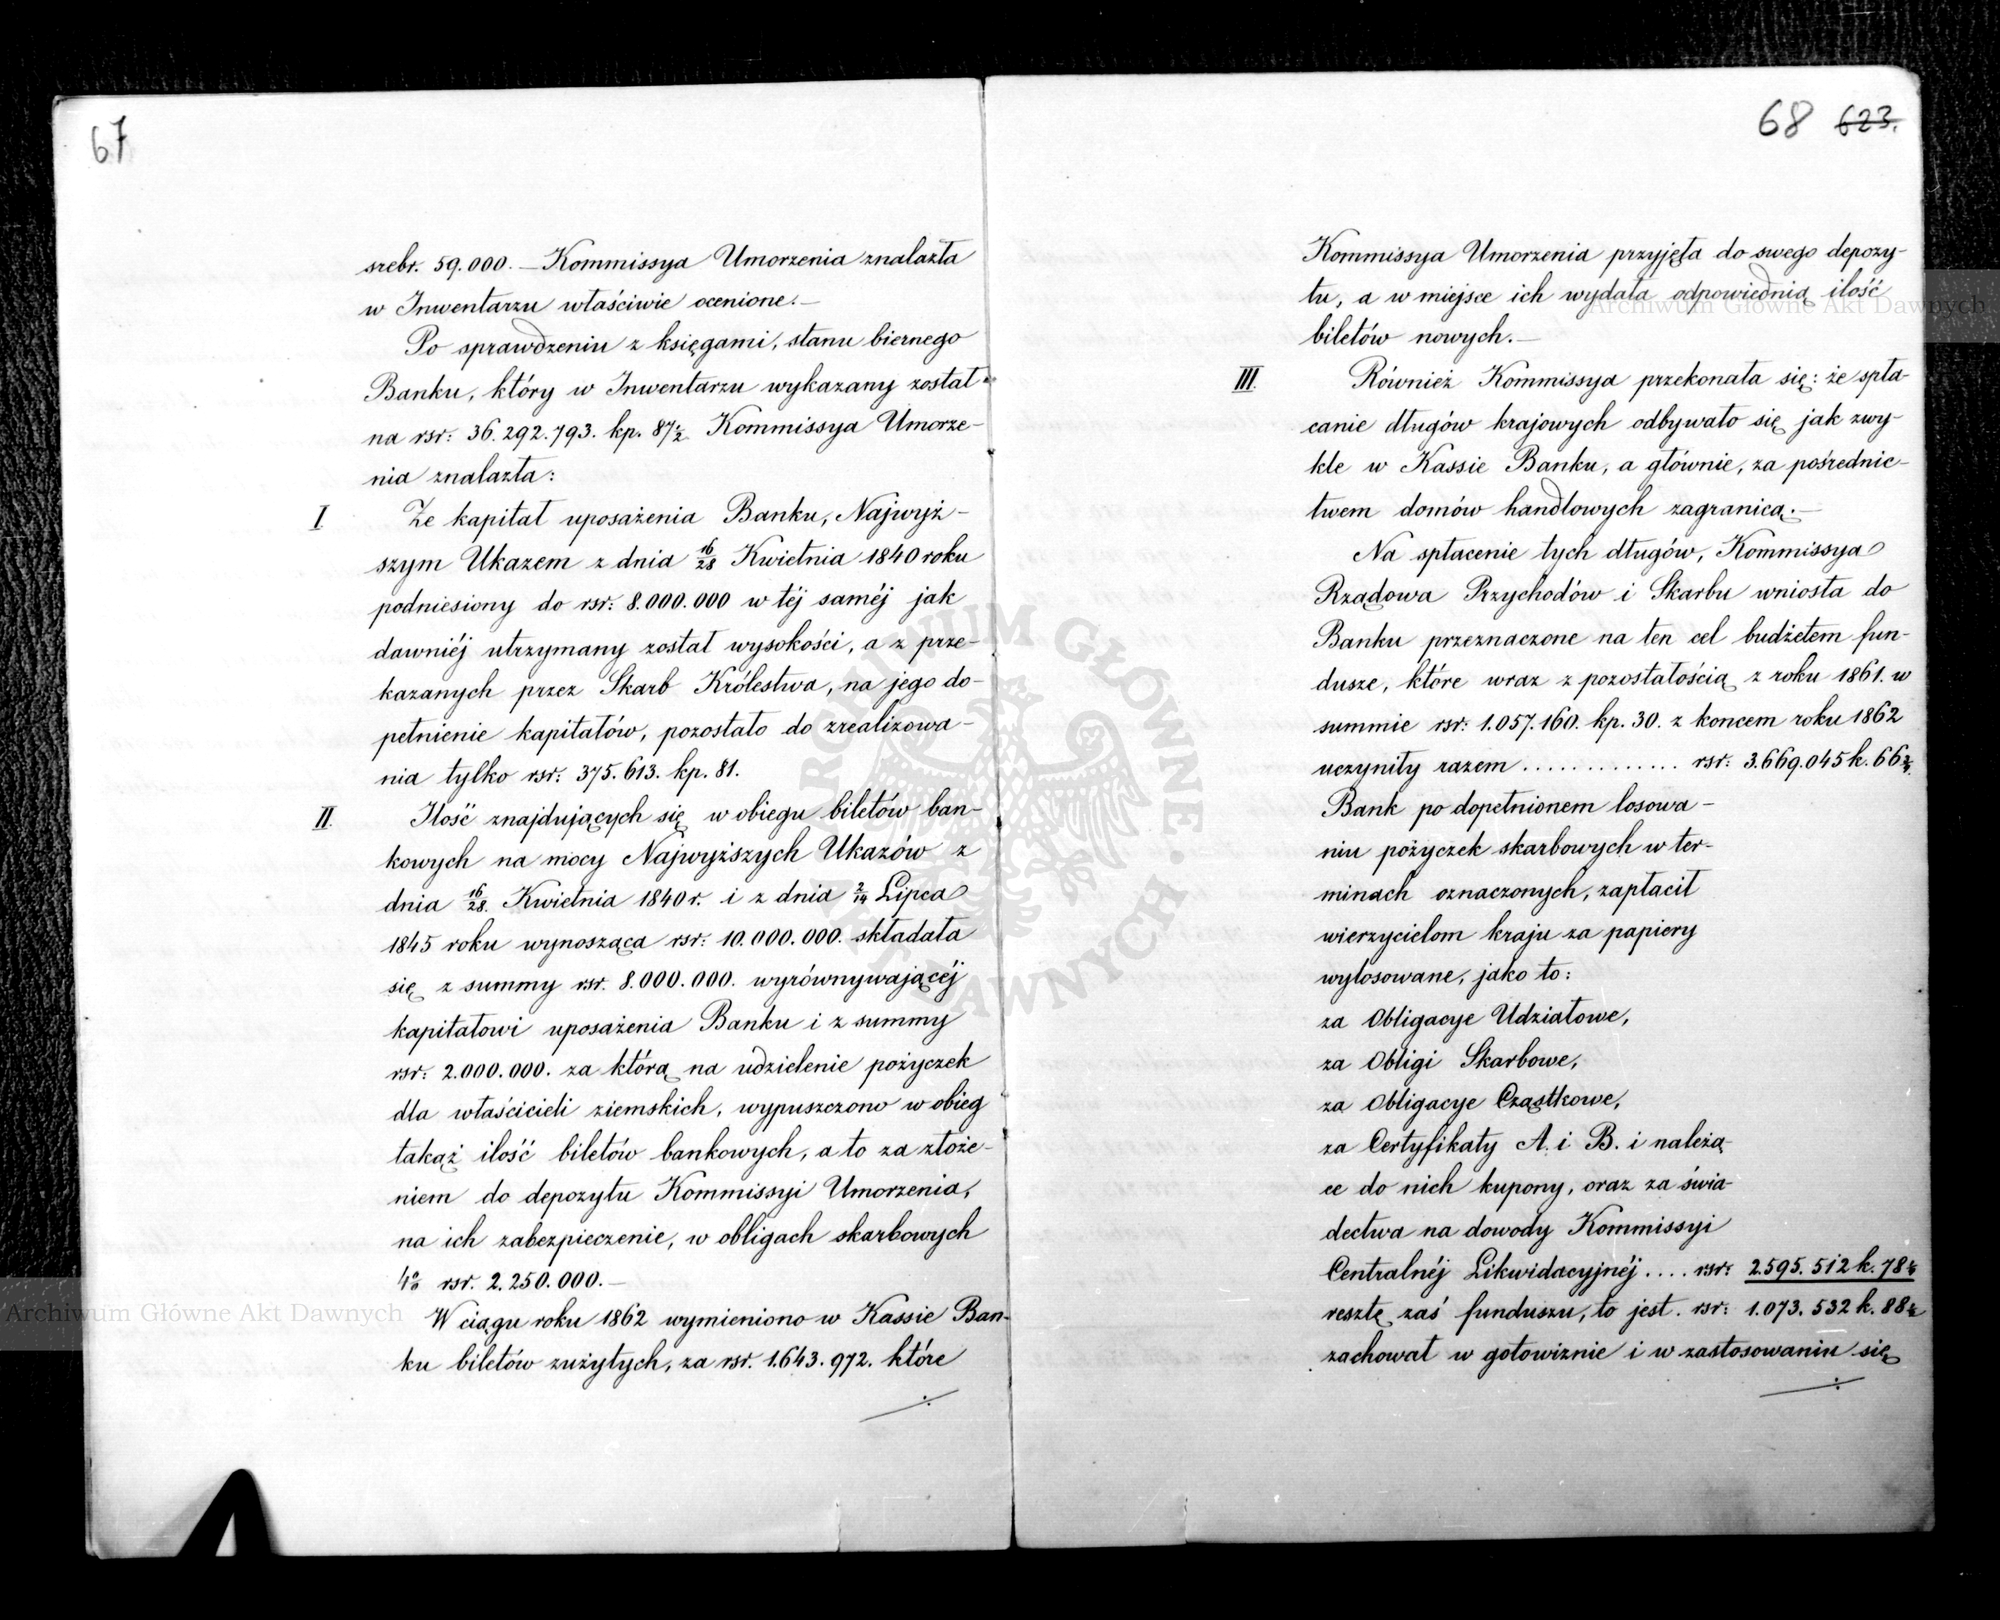 67
srebr. 59.000. — Kommissya Umorzenia znalazła
w Inwentarzu właściwie ocenione. —
Po sprawdzeniu z księgami, stanu biernego
Banku, który w Inwentarzu wykazany został
na rsr: 36.292.793. kp. 87½ Kommissya Umorze-
nia znalazła:
I Że kapitał uposażenia Banku, Najwyż-
szym Ukazem z dnia 16/28 Kwietnia 1840 roku
podniesiony do rsr: 8.000.000 w téj saméj jak
dawniéj utrzymany został wysokości, a z prze-
kazanych przez Skarb Królestwa, na jego do-
pełnienie kapitałów, pozostało do zrealizowa-
nia tylko rsr: 375.613. kp. 81.
II. Ilość znajdujących się w obiegu biletów ban-
kowych na mocy Najwyższych Ukazów z
dnia 16/28. Kwietnia 1840 r. i z dnia 2/14 Lipca
1845 roku wynosząca rsr: 10.000.000. składała
się z summy rsr. 8.000.000. wyrównywającéj
kapitałowi uposażenia Banku i z summy
rsr: 2.000.000. za którą na udzielenie pożyczek
dla właścicieli ziemskich, wypuszczono w obieg
takąż ilość biletów bankowych, a to za złoże-
niem do depozytu Kommissyi Umorzenia,
na ich zabezpieczenie, w obligach skarbowych
4% rsr. 2.250.000. —
W ciągu roku 1862 wymieniono w Kassie Ban-
ku biletów zużytych, za rsr. 1.643.972. które
68 623.
Kommissya Umorzenia przyjęła do swego depozy-
tu, a w miejsce ich wydała odpowiednią ilość
biletów nowych. —
III. Również Kommissya przekonała się: że spła-
canie długów krajowych odbywało się jak zwy-
kle w Kassie Banku, a głównie, za pośrednic-
twem domów handlowych zagranicą. —
Na spłacenie tych długów, Kommissya
Rządowa Przychodów i Skarbu wniosła do
Banku przeznaczone na ten cel budżetem fun-
dusze, które wraz z pozostałością z roku 1861. w
summie rsr: 1.057.160. kp. 30. z koncem roku 1862
uczyniły razem ............. rsr: 3.669.045 k. 66
Bank po dopełnionem losowa-
niu pożyczek skarbowych w ter-
minach oznaczonych, zapłacił
wierzycielom kraju za papiery
wylosowane, jako to:
za Obligacye Udziałowe,
za Obligi Skarbowe,
za Obligacye Cząstkowe,
za Certyfikaty A. i B. i należą-
ce do nich kupony, oraz za świa-
dectwa na dowody Kommissyi
Centralnéj Likwidacyjnéj .... rsr: 2.595.512 k. 78
resztę zaś funduszu, to jest. rsr: 1.073.532 k. 88
zachował w gotowiznie i w zastosowaniu się
Archiwum Główne Akt Dawnych
Archiwum Główne Akt Dawnych
ARCHIWUM GŁÓWNE AKT DAWNYCH